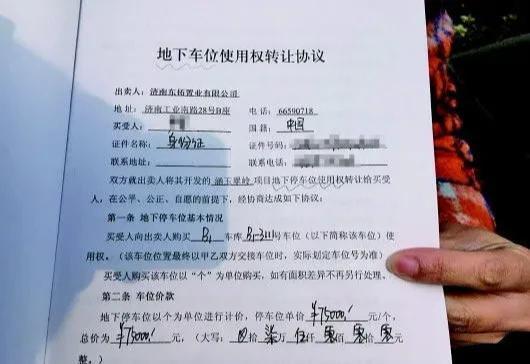 地下车位使用权转让协议
出卖人：济南东拓置业有限公司
地址：济南工业南路28号B座 电话：66590718
买受人： 国籍：中国
证件名称：身份证 证件号码：
联系地址： 联系电话：
双方就出卖人将其开发的 涵玉翠岭 项目地下停车位使用权转让给买受
人，在公平、公正、自愿的前提下，经协商达成如下协议：
第一条 地下停车位基本情况
买受人向出卖人购买 B1 车库 B1-311号车位（以下简称该车位）使
用权。（该车位位置最终以甲乙双方交接车位时，实际划定车位号为准）
买受人购买该车位以“个”为单位购买，如有面积差异不再另行处理。
第二条 车位价款
地下停车位以个为单位进行计价，停车位单价 ¥75000! 元/个，
总价为 ¥75000! 元，（大写： 拾 柒 万 伍 仟 零 佰 零 拾 零 元
整。）